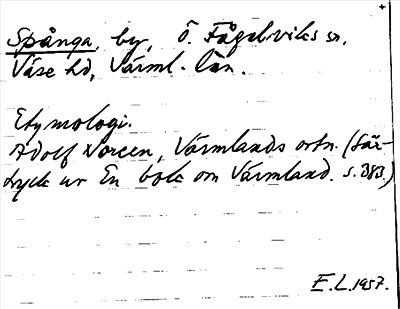 Spånga, by, Ö. Fågelviks sn,
Väse hd, Värml. län.
Etymologi.
Adolf Noreen, Värmlands ortn. (Sär-
tryck ur En bok om Värmland. s. 383.)
E.L. 1957.